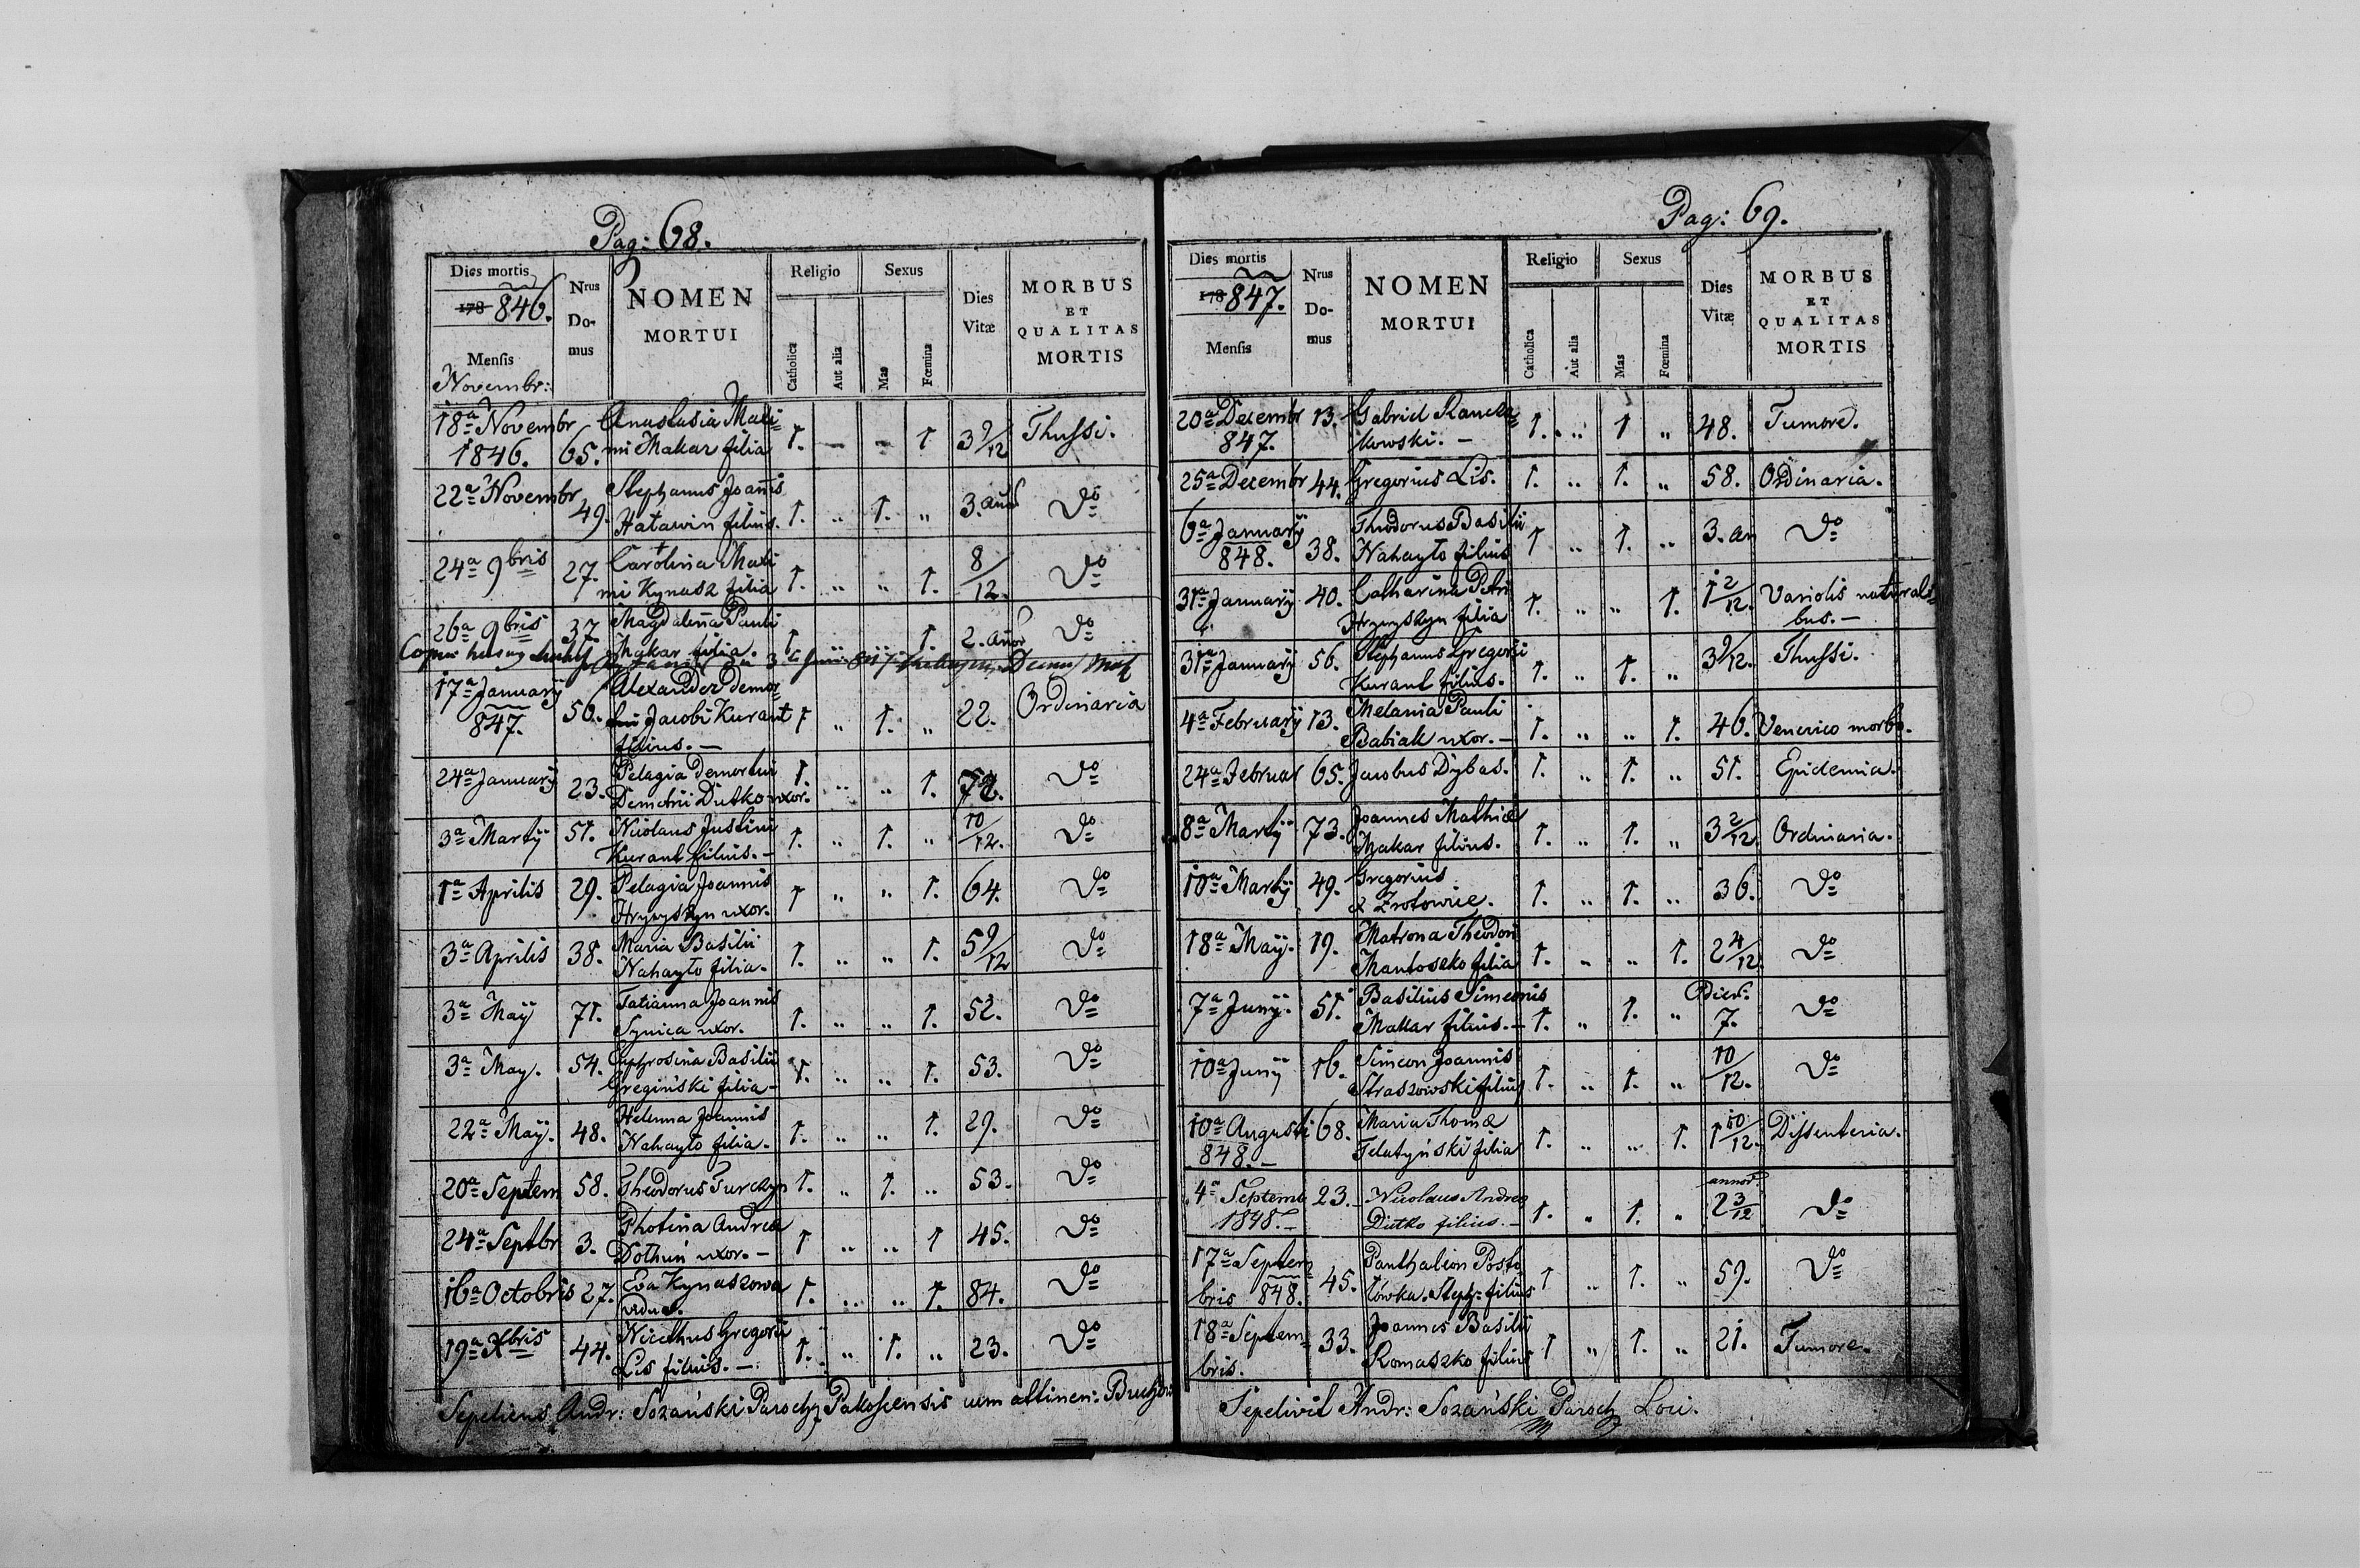 Pag: 68.
Dies mortis
178 846.
Mensis
Novembr:
Nrus Do- mus
NOMEN
MORTUI
Religio
Catholica
Aut alia
Sexus
Mas
Fœmina
Dies
Vitæ
MORBUS
ET
QUALITAS
MORTIS
18a Novembr 1846. 65. Anastasia Maxi= mi Makar filia 1. - - 1 3 9/12 Thussi.
22a Novembr 49. Stephanus Joannis Hatawin filius. 1. „ 1. „ 3. ann do
24a 9bris 27. Carolina Maxi mi Kynasz filia 1. „ „ 1. 8/12. do
26a 9bris 37. Magdalena Pauli Makar filia. 1. „ „ 1. 2. annor do
17a Januarij 847. 50. Alexander demor= tui Jacobi Kurant filius. — 1 „ 1. „ 22. Ordinaria
24a Januarij 23. Pelagia demortui Demetrii Dutko uxor. 1. „ „ 1. 72. do
3a Martij 51. Nicolaus Justini Kurant filius. — 1. „ 1. „ 10/12. do
1a Aprilis 29. Pelagia Joannis Hryryszyn uxor. 1 „ „ 1. 64. do
3a Aprilis 38. Maria Basilii Nahayto filia. 1. „ „ 1. 5 9/12 do
3a Maij 71. Tatianna Joannis Synica uxor. 1. „ „ 1. 52. do
3a May. 54. Euphrosina Basilii Greginski filia — 1. „ „ 1. 53. do
22a Maij. 48. Helenna Joannis Nahayto filia. 1. „ „ 1. 29. do
20a Septem 58. Theodorus Turczyn 1. „ 1. „ 53. do
24a Septbr 3. Photina Andreæ Dothun uxor. — 1 „ „ 1 45. do
16a Octobris 27. Eva Kynaszowa vidua. 1. „ „ 1. 84. do
19a Xbris 44. Nicethus Gregorii Lis filius. — 1. „ 1. „ 23. do
Sepeliens Andr: Sozański Paroch Pakosciensis cum attinen:
Pag: 69.
Dies mortis
178 847.
Mensis
Nrus Do- mus
NOMEN
MORTUI
Religio
Catholica
Aut alia
Sexus
Mas
Fœmina
Dies
Vitæ
MORBUS
ET
QUALITAS
MORTIS
20a Decembr 847. 13. Gabriel Rancza= kowski. — 1. „ 1 „ 48. Tumore.
25a Decembr 44. Gregorius Lis. 1. „ 1. „ 58. Ordinaria.
6a Januarij 848. 38. Theodorus Basilii Nahayto filius 1 „ 1. „ 3. an do
31a Januarij 40. Catharina Petri Hryryszyn filia 1. „ „ 1. 1 2/12. Variolis naturali= bus. —
31a Januarij 56. Stephanus Gregorii Kurant filius. 1. „ 1. „ 3 9/12. Thussi.
4a Februarij 13. Melania Pauli Babiak uxor. — 1. „ „ 1. 46. Venerico morbo.
24a Februar 65. Jacobus Dybas. 1. „ 1. „ 51. Epidemia.
8a Martij 73. Joannes Mathiæ Makar filius. 1. „ 1. „ 3 2/12 Ordinaria.
10a Martij 49. Gregorius 1. „ 1. „ 36. do
18a Maij. 19. Matrona Theodori Mantoszko filia 1. „ „ 1. 2 4/12. do
7a Junij. 51. Basilius Simeonis Makar filius. — 1. „ 1. „ Dier. 7. do
10a Junij 16. Simeon Joannis Straszowski filius 1. „ 1. „ 10/12. do
10a Augusti 848. — 68. Maria Thomæ Telatyński filia 1. „ „ 1. 1 10/12. Dissenteria.
4a Septemb 1848. — 23. Nicolaus Andreæ Dutko filius. — 1. „ 1. „ annor. 2 3/12 do
17a Septem= bris 848. 45. Panthaleon Posto łówka. Steph: filius 1 „ 1. „ 59. do
18a Septem= bris. 33. Joannes Basilii Romaszko filius 1 „ 1. „ 21. Tumore.
Sepelivit Andr: Sozański Paroch Loci.